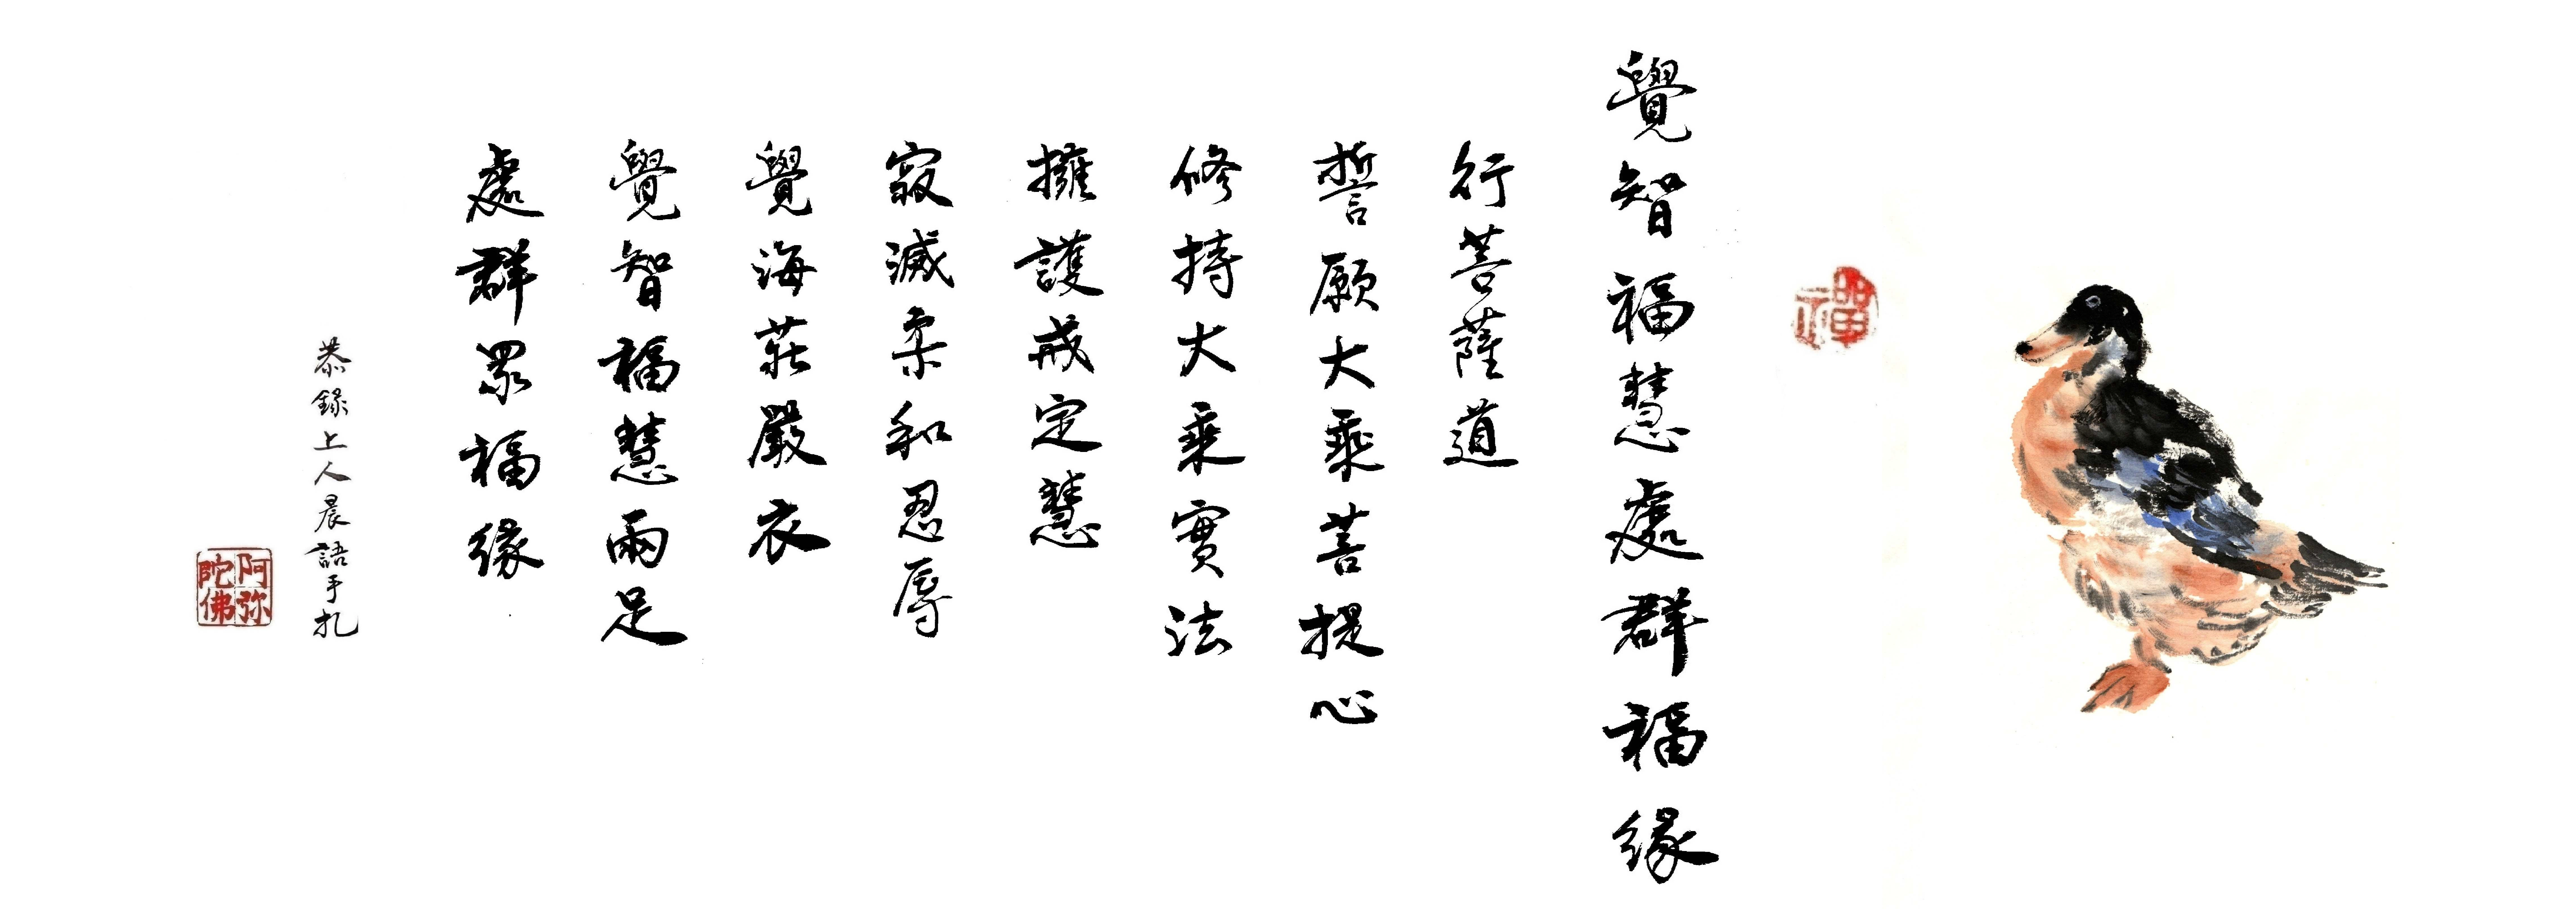 禪
覺智福慧處群福緣
行菩薩道
誓願大乘菩提心
修持大乘實法
擁護戒定慧
寂滅柔和忍辱
覺海莊嚴衣
覺智福慧兩足
處群眾福緣
恭錄上人晨語手札
阿弥陀佛